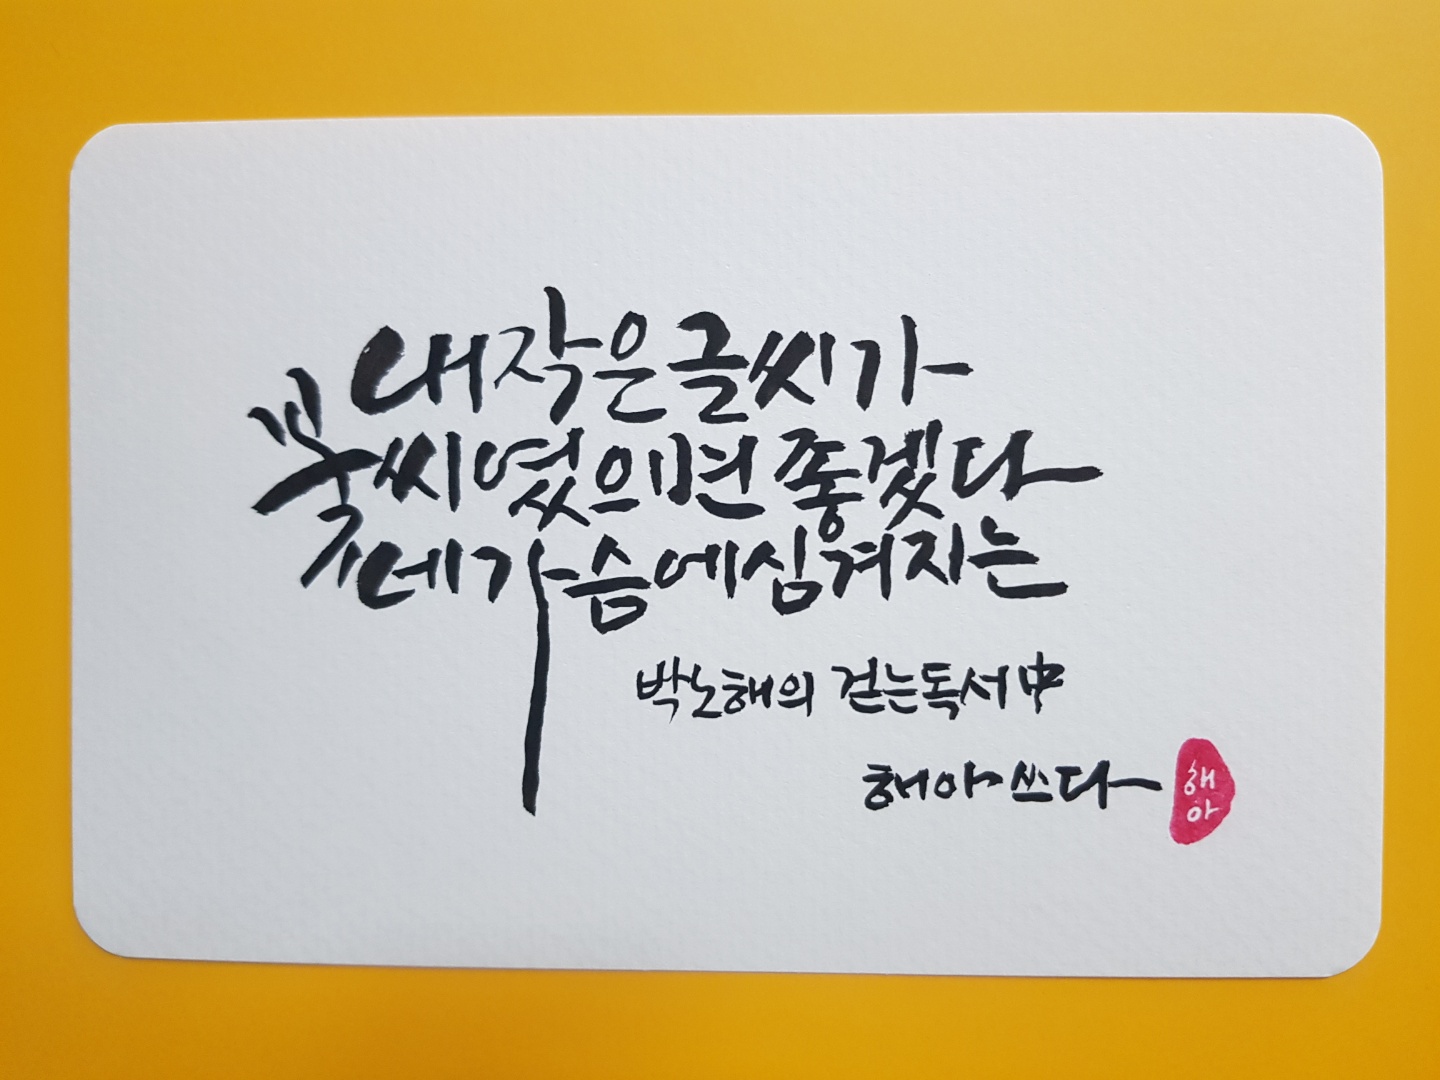 내 작은 글씨가
꽃씨였으면 좋겠다
네 가슴에 심겨지는
박노해의 걷는독서 中
해아 쓰다
해아